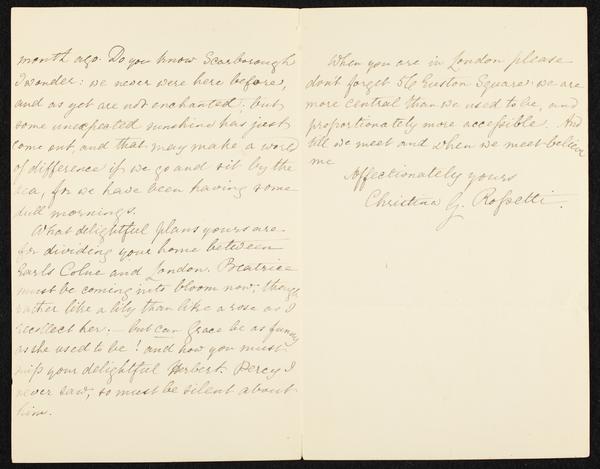 month ago. Do you know Scarborough
I wonder: we never were here before,
and as yet are not enchanted; but
some unexpected sunshine has just
come out and that may make a world
of difference if we go and sit by the
sea, for we have been having some
dull mornings.
What delightful plans yours are
for dividing your home between
Earls Colne and London. Beatrice
must be coming into bloom now; though
rather like a lily than like a rose as I
recollect her. – but can Grace be as funny
as she used to be! and how you must
miss your delightful Herbert. Percy I
never saw, so must be silent about
him.
When you are in London please
dont forget 56 Euston Square: we are
more central than we used to be, and
proportionately more accessible. And
till we meet and when we meet believe
me
Affectionately yours
Christina G. Rossetti.